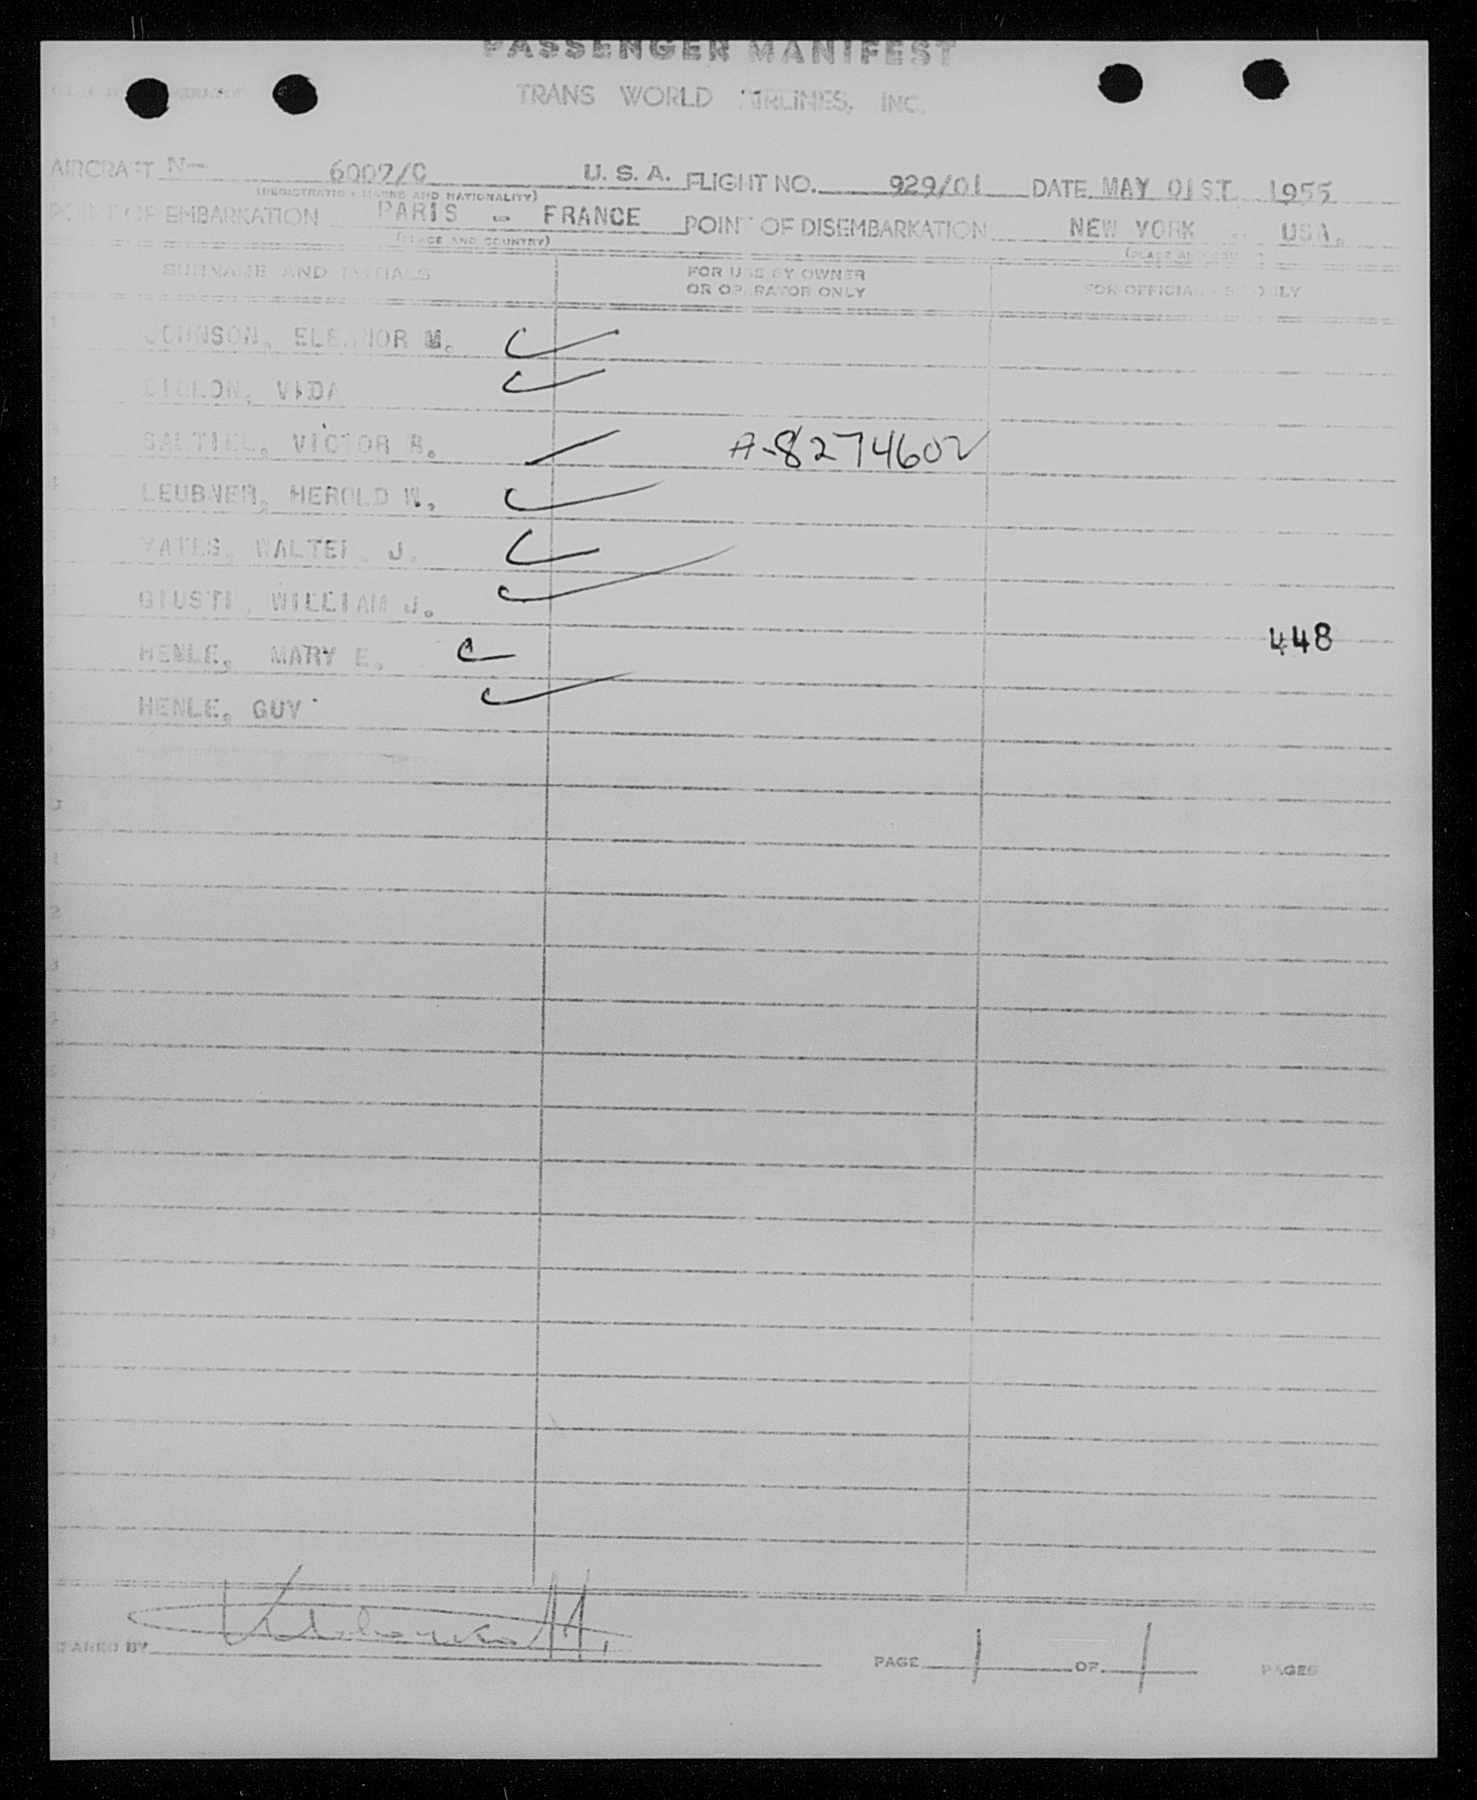 PASSENGER MANIFEST
TRANS WORLD AIRLINES, INC.
AIRCRAFT N— 6002/C U. S. A. FLIGHT NO. 929/01 DATE MAY 01ST 1955
(REGISTRATION MARKS AND NATIONALITY)
POINT OF EMBARKATION PARIS - FRANCE POINT OF DISEMBARKATION NEW YORK - USA.
(PLACE AND COUNTRY) (PLACE AND COUNTRY)
SURNAME AND INITIALS FOR USE BY OWNER OR OPERATOR ONLY FOR OFFICIAL USE ONLY
JOHNSON, ELEANOR M.
DILLON, VIDA
SALTIEL, VICTOR R. A-8274602
LEUBNER, HEROLD W.
YATES, WALTER J.
GIUSTI, WILLIAM J.
448
HENLE, MARY E.
HENLE, GUY
PREPARED BY PAGE 1 OF 1 PAGES